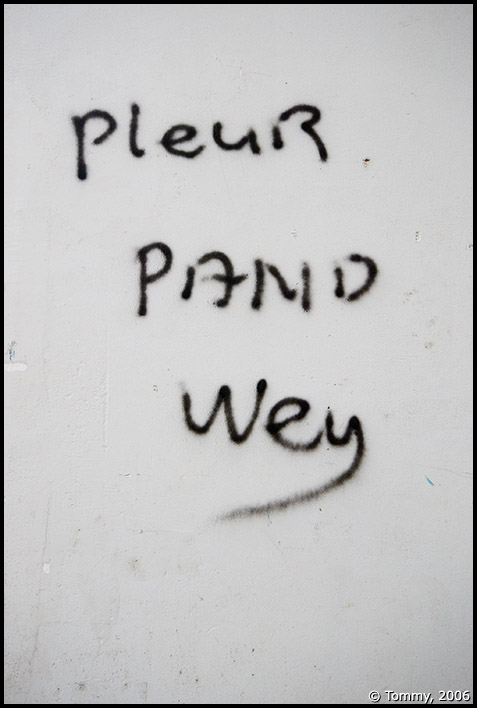 PleuR
PAND
Wey
© Tommy, 2006